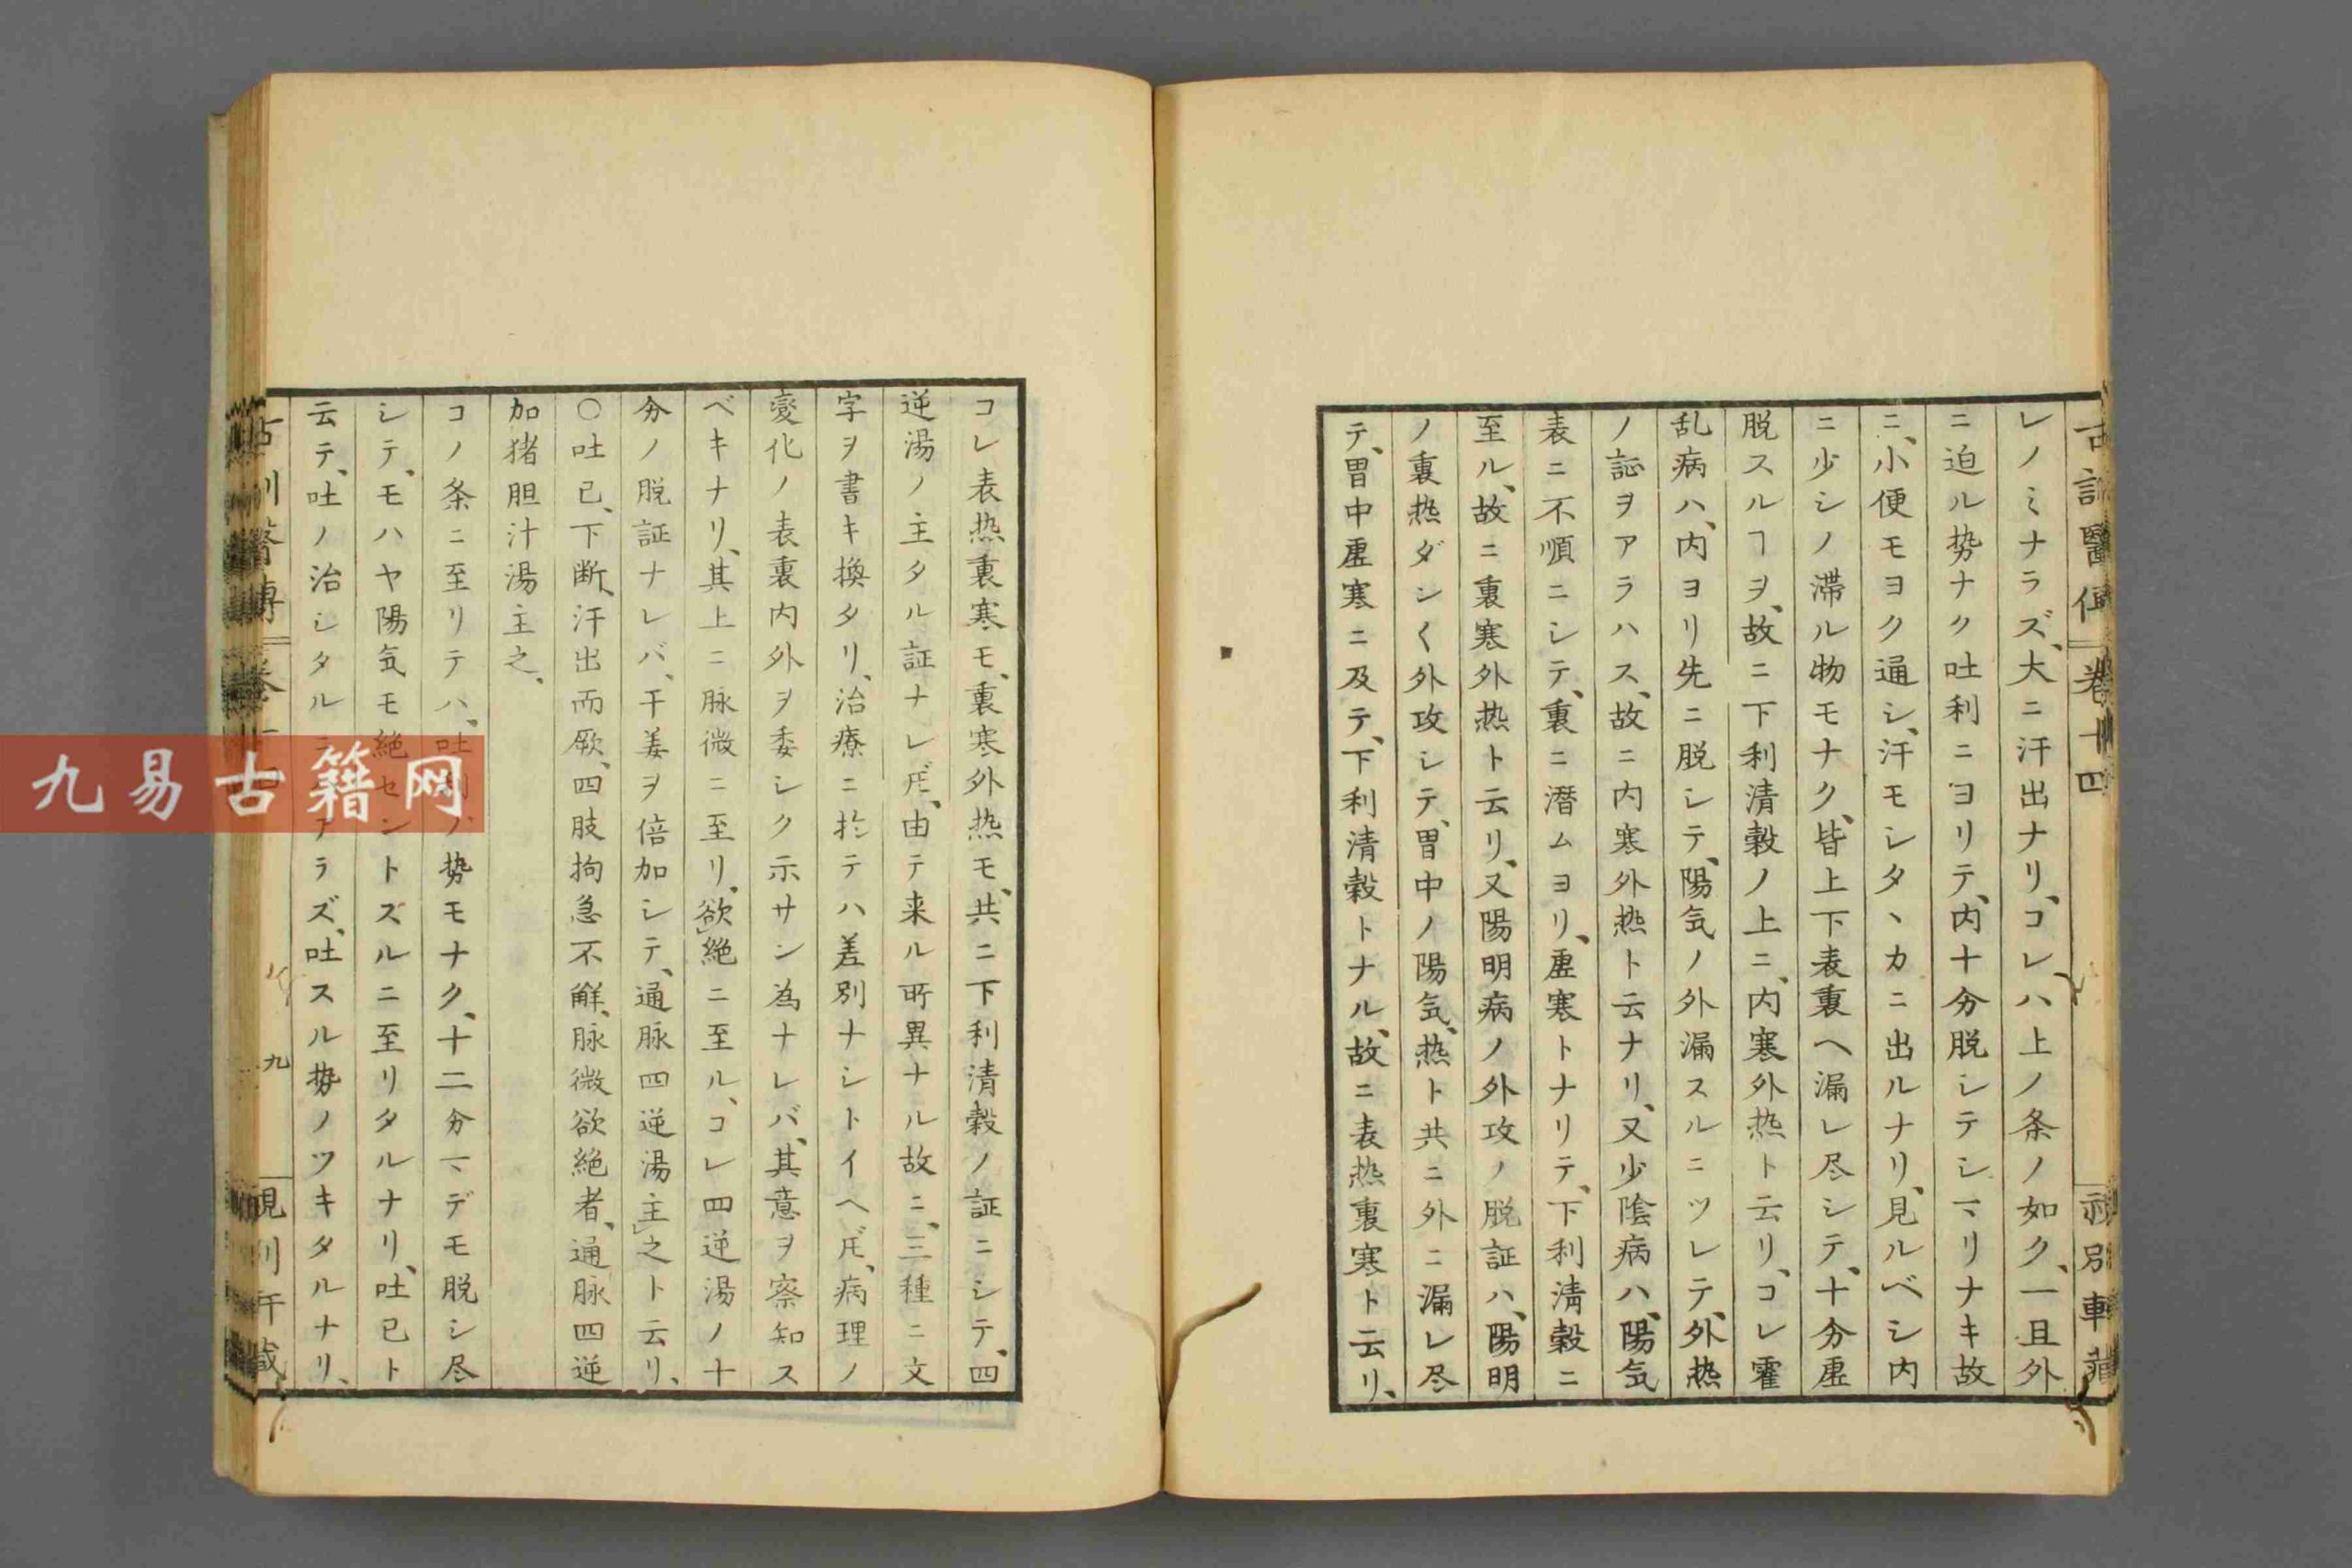 古訓醫傳 卷十四
レノミナラズ、大ニ汗出ナリ、コレハ上ノ条ノ如ク、一旦外
ニ迫ル势ナク吐利ニヨリテ、内十分脱シテシマリナキ故
ニ、小便モヨク通シ、汗モシタヽカニ出ルナリ、見ルベシ内
ニ少シノ滞ル物モナク、皆上下表裏ヘ漏レ尽シテ、十分虚
脱スルヿヲ、故ニ下利清穀ノ上ニ、内寒外热ト云リ、コレ霍
乱病ハ、内ヨリ先ニ脱シテ、陽気ノ外漏スルニツレテ、外热
ノ証ヲアラハス、故ニ内寒外热ト云ナリ、又少陰病ハ、陽気
表ニ不順ニシテ、裏ニ潜ムヨリ、虚寒トナリテ、下利清穀ニ
至ル、故ニ裏寒外热ト云リ、又陽明病ノ外攻ノ脱証ハ、陽明
ノ裏热ダシく外攻シテ、胃中ノ陽気、热ト共ニ外ニ漏レ尽
テ、胃中虚寒ニ及テ、下利清穀トナル、故ニ表热裏寒ト云リ、
コレ表热裏寒モ、裏寒外热モ、共ニ下利清穀ノ証ニシテ、四
逆湯ノ主タル証ナレ𪜈、由テ来ル所異ナル故ニ、三種ニ文
字ヲ書キ換タリ、治療ニ於テハ差別ナシトイヘ𪜈、病理ノ
変化ノ表裏内外ヲ委シク示サン為ナレバ、其意ヲ察知ス
ベキナリ、其上ニ脉微ニ至リ、欲絶ニ至ル、コレ四逆湯ノ十
分ノ脱証ナレバ、干姜ヲ倍加シテ、通脉四逆湯主之ト云リ、
○吐已、下断、汗出而厥、四肢拘急不解、脉微欲絶者、通脉四逆
加猪胆汁湯主之、
コノ条ニ至リテハ、吐利ノ势モナク、十二分マデモ脱シ尽
シテ、モハヤ陽気モ絶セントズルニ至リタルナリ、吐已ト
云テ、吐ノ治シタルニアラズ、吐スル势ノツキタルナリ、
九
九易古籍网